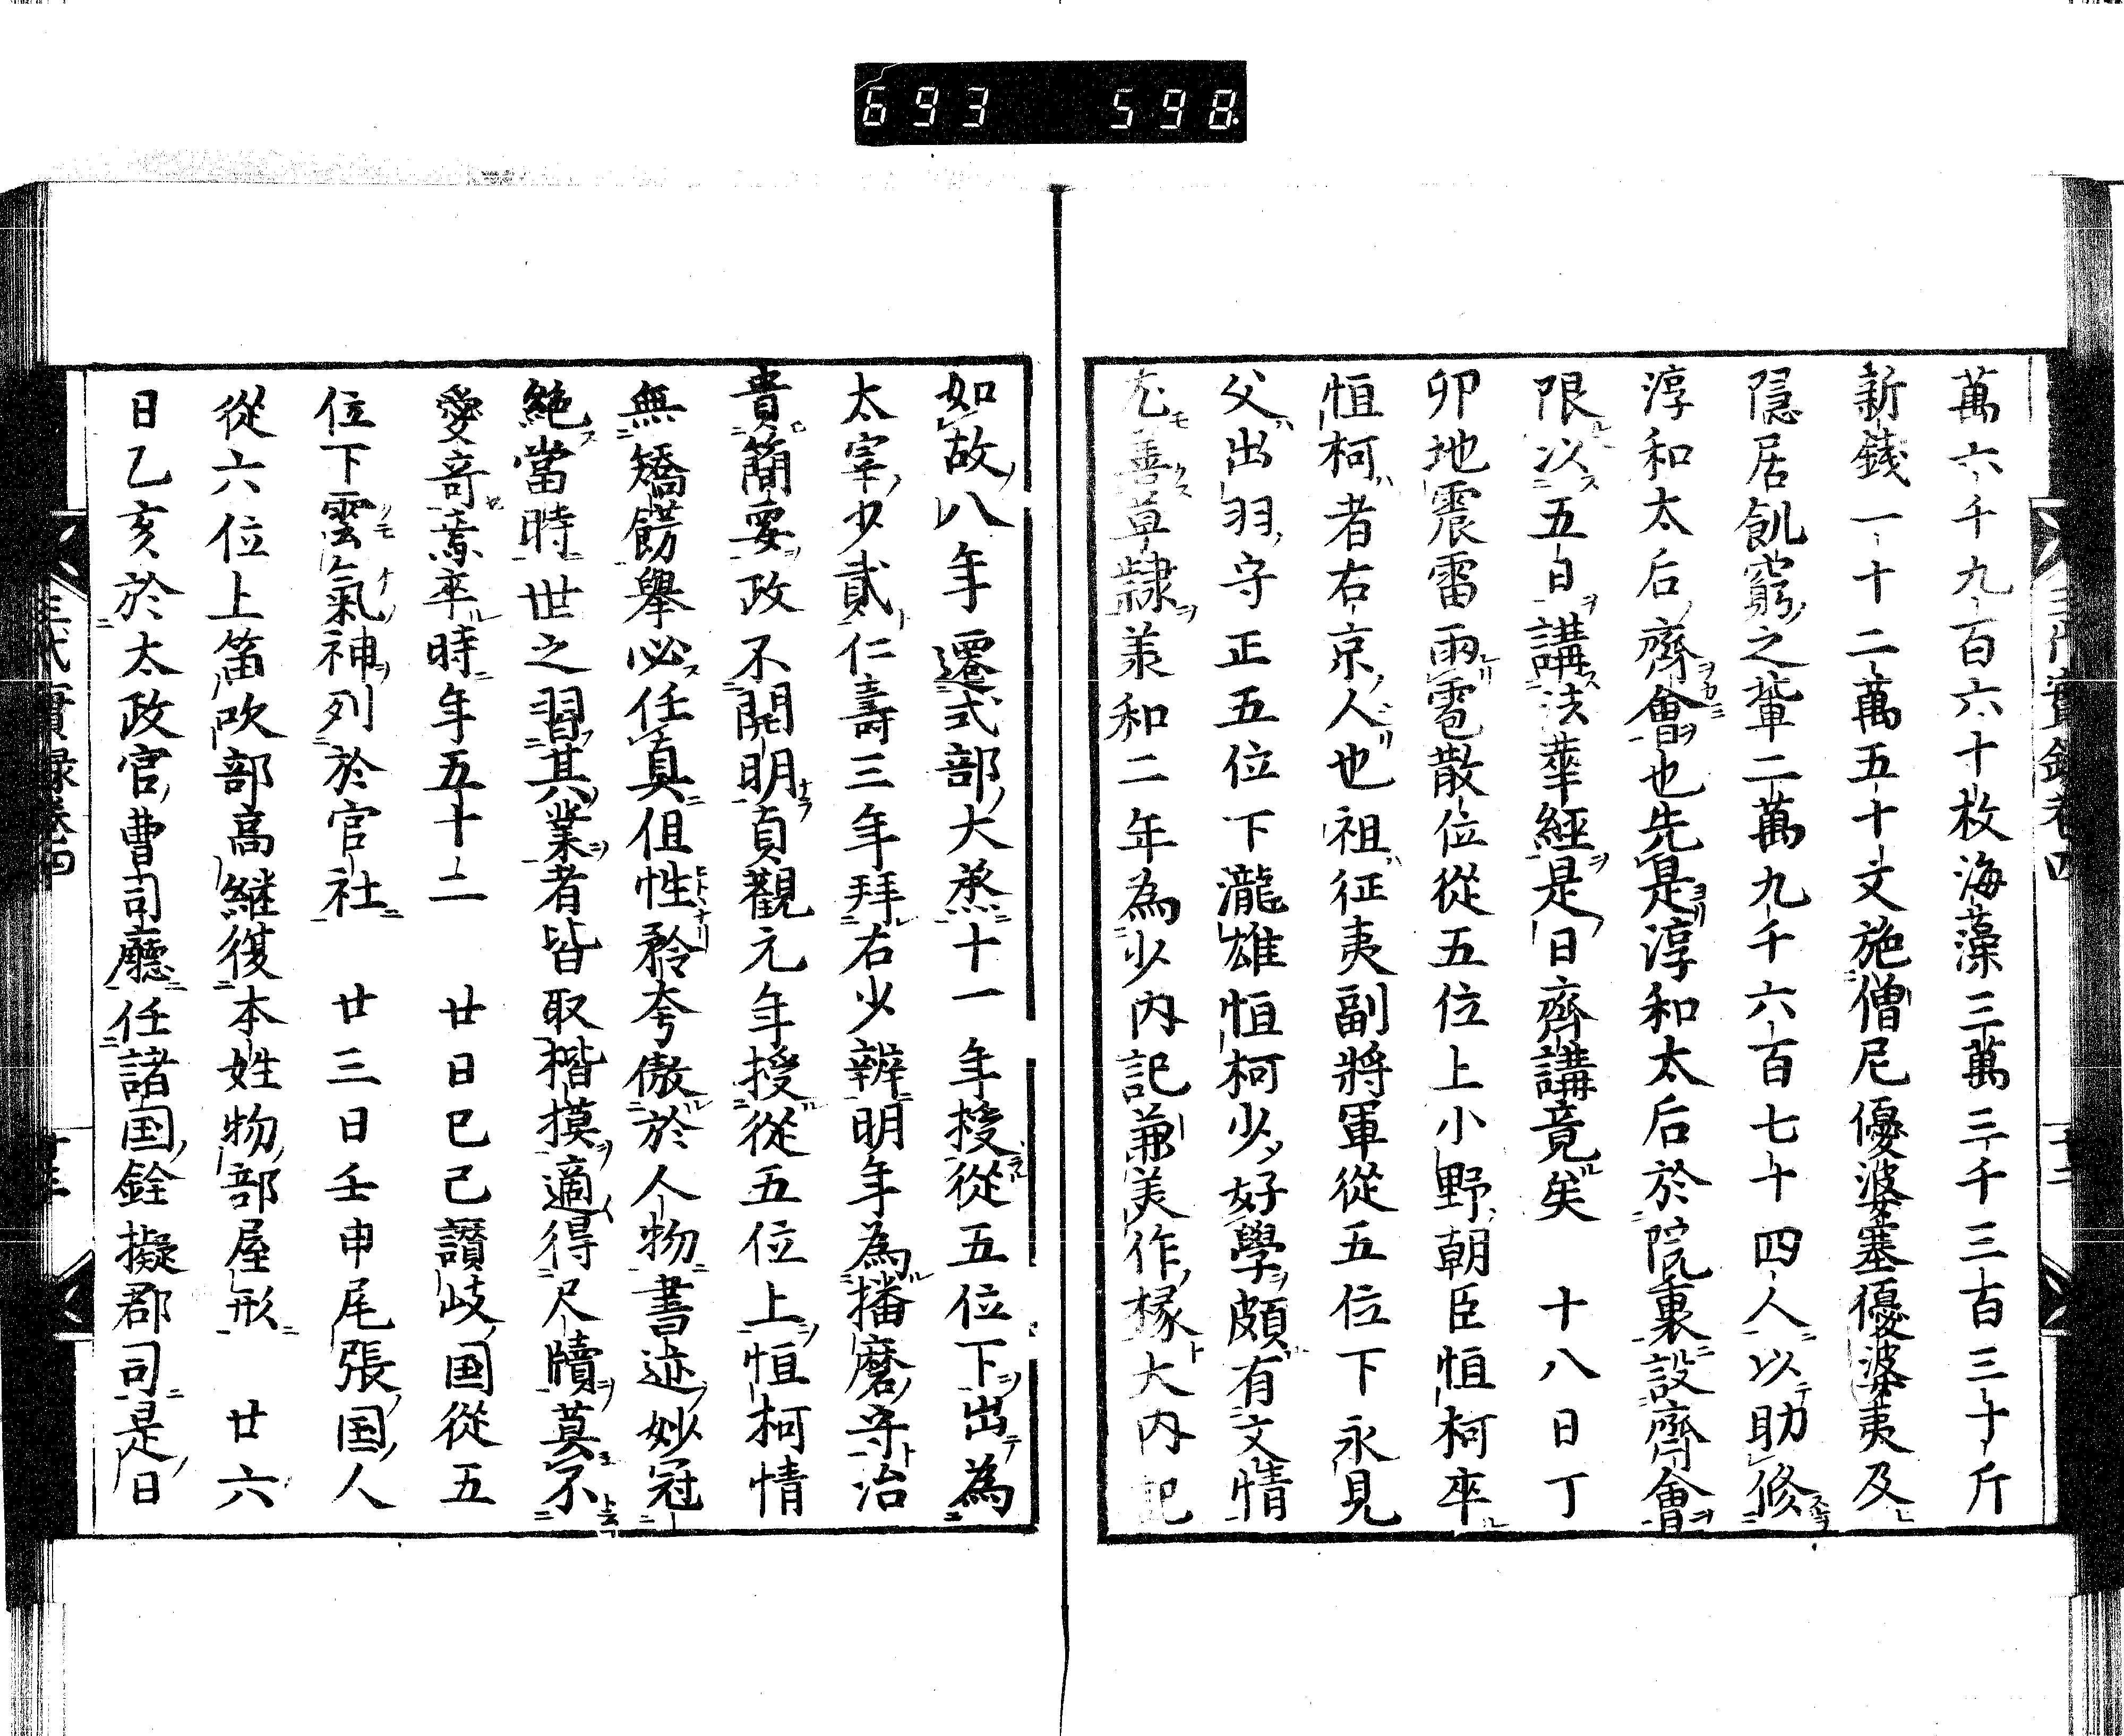 693 598
萬六千九百六十枚海藻三萬三千三百三十斤
新錢一十二萬五十文施僧尼優婆塞優婆夷及
隱居飢窮之輩二萬九千六百七十四人以助修
淳和太后齊會也先是淳和太后於院裏設齊會
限以五日講法華經是日齊講竟矣　十八日丁
卯地震雷雨雹散位從五位上小野朝臣恒柯卒
恒柯者右京人也祖征夷副將軍從五位下永見
父出羽守正五位下瀧雄恒柯少好學頗有文情
尤善草隸羕和二年為少內記兼美作掾大內記
如故八年遷式部大烝十一年授從五位下出為
太宰少貳仁壽三年拜右少辨明年為播磨守治
貴簡要政不開明貞觀元年授從五位上恒柯情
無矯餝舉必任真伹性矜夸傲於人物書迹妙冠
絕當時世之習其業者皆取楷摸適得尺牘莫不
愛竒焉卒時年五十二　廿日巳己讚岐国從五
位下雲氣神列於官社　廿三日壬申尾張国人
從六位上笛吹部高継復本姓物部屋形　廿六
日乙亥於太政官曹司廳任諸国銓擬郡司是日
三代實録卷四